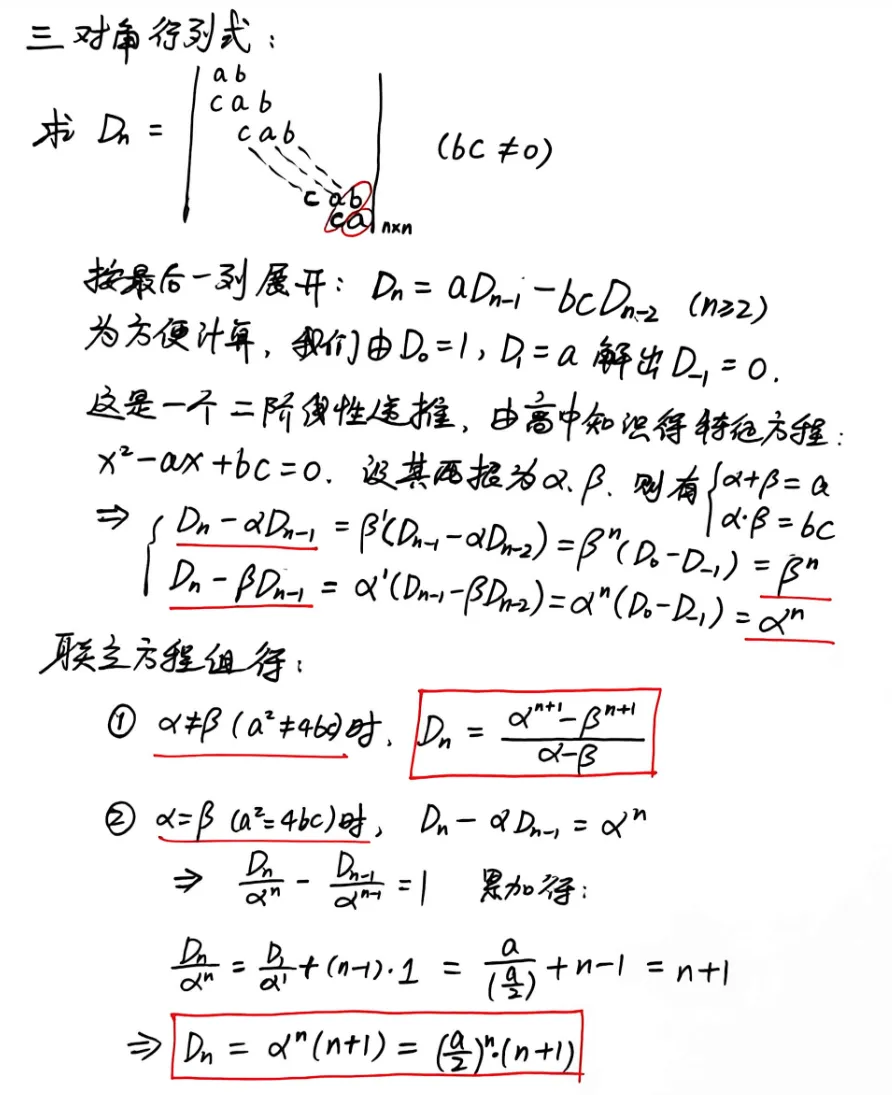 三对角行列式：
求 Dn = | a b
c a b
c a b
c a b
c a | n×n (bc ≠ 0)
按最后一列展开：Dn = aDn-1 - bcDn-2 (n≥2)
为方便计算，我们由D0=1，D1=a 解出D-1=0.
这是一个二阶线性递推，由高中知识得特征方程：
x²-ax+bc=0. 设其两根为α、β. 则有 { α+β=a
α·β=bc
⇒ { Dn-αDn-1 = β'(Dn-1-αDn-2) = βⁿ(D0-D-1) = βⁿ
Dn-βDn-1 = α'(Dn-1-βDn-2) = αⁿ(D0-D-1) = αⁿ
联立方程组得：
① α≠β (a²≠4bc)时， Dn = (αⁿ⁺¹-βⁿ⁺¹)/(α-β)
② α=β (a²=4bc)时， Dn-αDn-1 = αⁿ
⇒ Dn/αⁿ - Dn-1/αⁿ⁻¹ = 1 累加得：
Dn/αⁿ = D1/α¹ + (n-1)·1 = a/(a/2) + n-1 = n+1
⇒ Dn = αⁿ(n+1) = (a/2)ⁿ·(n+1)